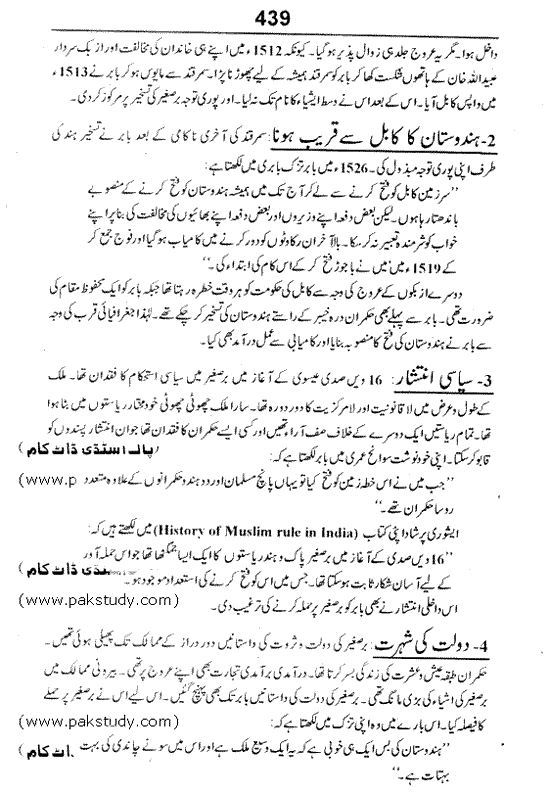 439
داخل ہوا۔ مگر یہ عروج جلد ہی زوال پذیر ہو گیا۔ کیونکہ 1512ء میں اپنے ہی خاندان کی مخالفت اور ازبک سردار
عبید اللہ خان کے ہاتھوں شکست کھا کر بابر کو سمرقند ہمیشہ کے لیے چھوڑنا پڑا۔ سمرقند سے مایوس ہو کر بابر نے 1513ء
میں واپس کابل آیا۔ اس کے بعد اس نے وسط ایشیاء کا نام تک نہ لیا۔ اور پوری توجہ برصغیر کی تسخیر پر مرکوز کر دی۔
2- ہندوستان کا کابل سے قریب ہونا: سمرقند کی آخری ناکامی کے بعد بابر نے تسخیر ہند کی
طرف اپنی پوری توجہ مبذول کی۔ 1526ء میں بابر تزک بابری میں لکھتا ہے:
”سرزمین کابل کو فتح کرنے سے لے کر آج تک میں ہمیشہ ہندوستان کو فتح کرنے کے منصوبے
باندھتا رہا ہوں۔ لیکن بعض دفعہ اپنے وزیروں اور بعض دفعہ اپنے بھائیوں کی مخالفت کی بنا پر اپنے
خواب کو شرمندہ تعبیر نہ کر سکا۔ بالآخر ان رکاوٹوں کو دور کرنے میں کامیاب ہو گیا اور فوج جمع کر
کے 1519ء میں میں نے باجوڑ فتح کر کے اس کام کی ابتداء کی۔“
دوسرے ازبکوں کے عروج کی وجہ سے کابل کی حکومت کو ہر وقت خطرہ رہتا تھا جبکہ بابر کو ایک محفوظ مقام کی
ضرورت تھی۔ بابر سے پہلے بھی حکمران درہ خیبر کے راستے ہندوستان کی تسخیر کر چکے تھے۔ لہٰذا جغرافیائی قرب کی وجہ
سے بابر نے ہندوستان کی فتح کا منصوبہ بنایا اور کامیابی سے عمل درآمد بھی کیا۔
3- سیاسی انتشار: 16 ویں صدی عیسوی کے آغاز میں برصغیر میں سیاسی استحکام کا فقدان تھا۔ ملک
کے طول و عرض میں لاقانونیت اور لامرکزیت کا دور دورہ تھا۔ سارا ملک چھوٹی چھوٹی خودمختار ریاستوں میں بنا ہوا
تھا۔ تمام ریاستیں ایک دوسرے کے خلاف صف آراء تھیں اور کسی ایسے حکمران کا فقدان تھا جو ان انتشار پسندوں کو
قابو کر سکتا۔ اپنی خود نوشت سوانح عمری میں بابر لکھتا ہے کہ: پاک اسٹڈی ڈاٹ کام )
”جب میں نے اس خطہ زمین کو فتح کیا تو یہاں پانچ مسلمان اور دو ہندو حکمرانوں کے علاوہ متعدد (www.p
روسا حکمران تھے۔“
ایشوری پرشاد اپنی کتاب (History of Muslim rule in India) میں لکھتے ہیں کہ:
”16 ویں صدی کے آغاز میں برصغیر پاک و ہند ریاستوں کا ایک ایسا جمگھٹا تھا جو اس حملہ آور
کے لیے آسان شکار ثابت ہو سکتا تھا۔ جس میں اس کو فتح کرنے کی استعداد موجود ہو۔“ سٹڈی ڈاٹ کام )
اس داخلی انتشار نے بھی بابر کو برصغیر پر حملہ کرنے کی ترغیب دی۔ (www.pakstudy.com)
4- دولت کی شہرت: برصغیر کی دولت و ثروت کی داستانیں دور دراز کے ممالک تک پھیلی ہوئی تھیں۔
حکمران طبقہ عیش و عشرت کی زندگی بسر کرتا تھا۔ درآمدی برآمدی تجارت بھی اپنے عروج پر تھی۔ بیرونی ممالک میں
برصغیر کی اشیاء کی بڑی مانگ تھی۔ برصغیر کی دولت کی داستانیں بابر تک بھی پہنچ گئیں۔ اس لیے اس نے برصغیر پر حملے
کا فیصلہ کیا۔ اس بارے میں وہ اپنی تزک میں لکھتا ہے کہ: (www.pakstudy.com)
”ہندوستان کی بس ایک ہی خوبی ہے کہ یہ ایک وسیع ملک ہے اور اس میں سونے چاندی کی بہت اٹ کام
بہتات ہے۔“